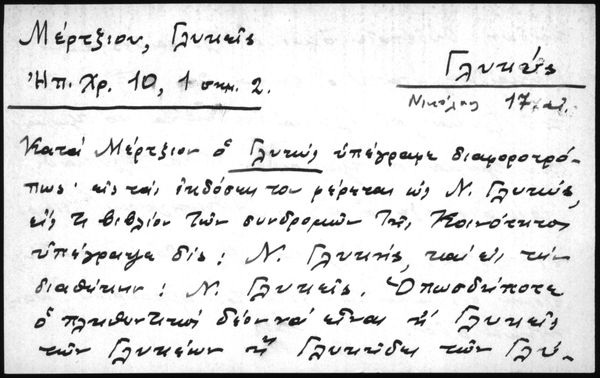 Μέρτζιου, Γλυκεῖς
Γλυκύς
Ἠπ. Χρ. 10, 1 σημ. 2.
Νικόλαος 17 αἰ.
Κατά Μέρτζιον ὁ Γλυκύς ὑπέγραφε διαφοροτρό-
πως· εἰς τάς ἐκδόσεις του φέρεται ὡς Ν. Γλυκύς,
εἰς τ βιβλίον τῶν συνδρομῶν τῆς Κοινότητος
ὑπέγραψε δίς: Ν. Γλυκής, καί εἰς τήν
διαθήκην: Ν. Γλυκεῖς. Ὁπωσδήποτε
ὁ πληθυντικός δέον νά εἶναι ἤ Γλυκεῖς
τῶν Γλυκέων ἤ Γλυκῆδες τῶν Γλυ-